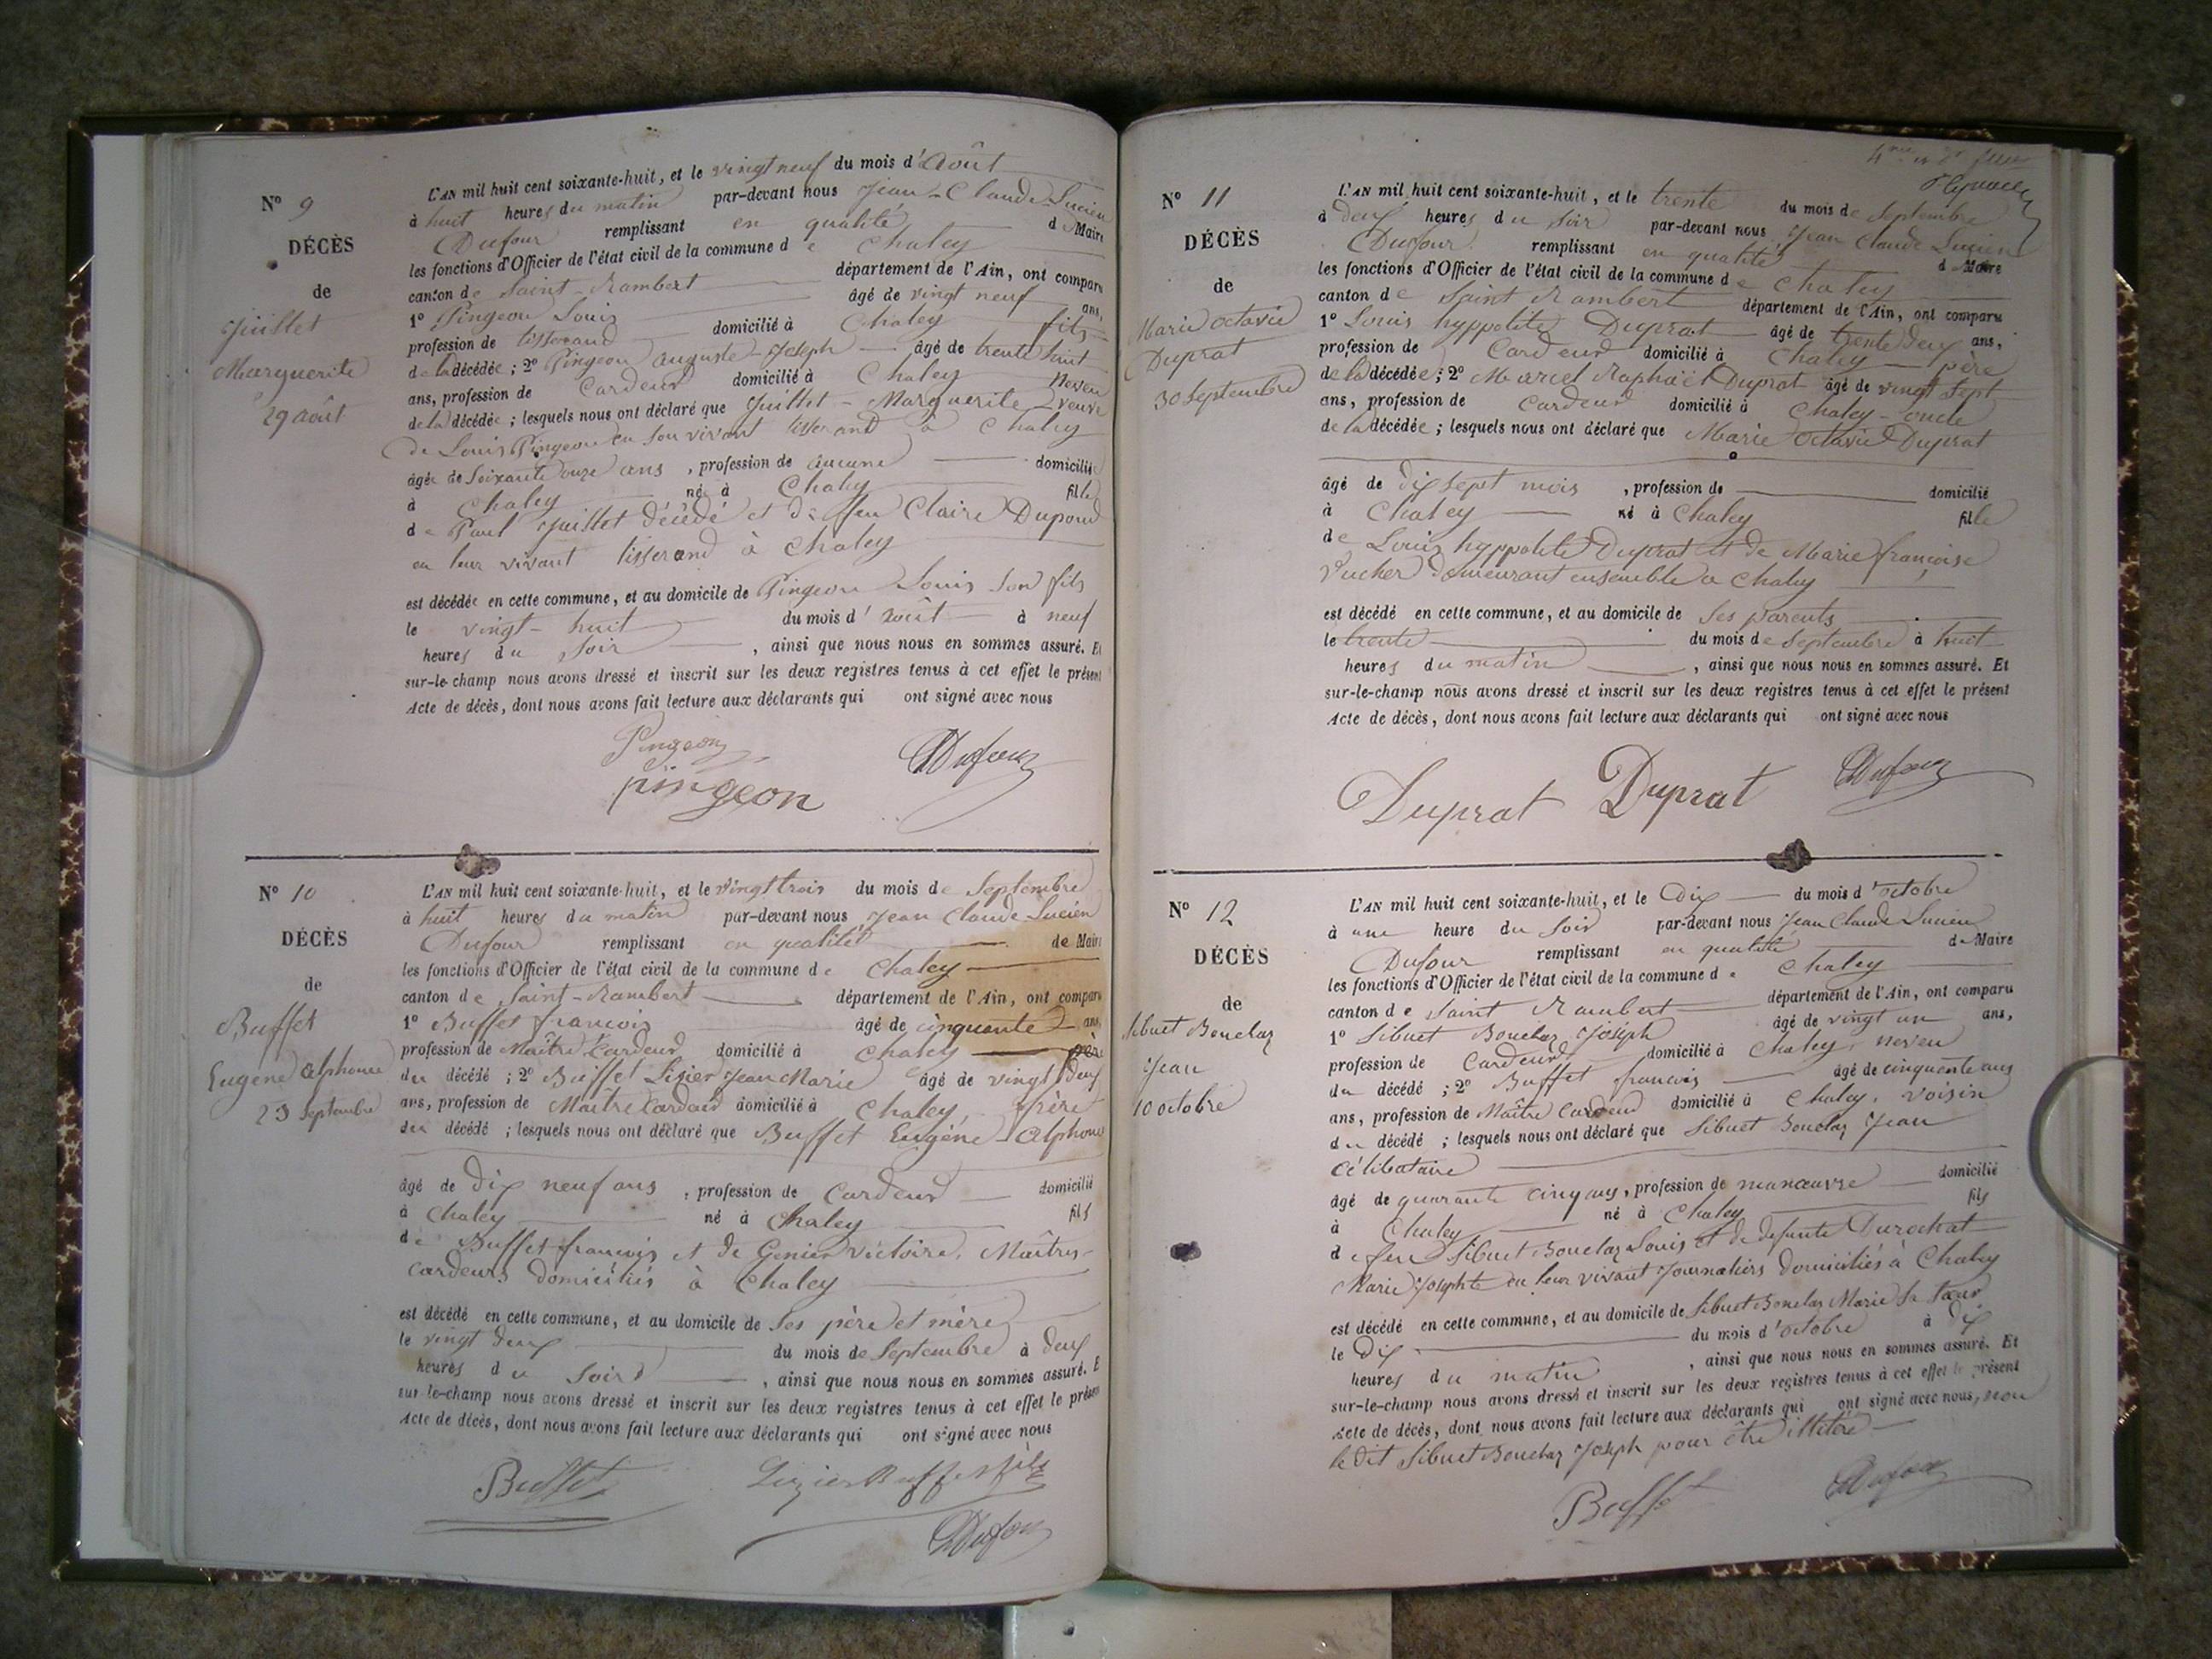 N° 9
DÉCÈS
de
Juillet
Marguerite
29 août
L'AN mil huit cent soixante-huit, et le vingt neuf du mois d'Août
à huit heures du matin par-devant nous Jean-Claude-Lucien
Dufour remplissant en qualité de Maire
les fonctions d'Officier de l'état civil de la commune de Chaley
canton de Saint-Rambert département de l'Ain, ont comparu
1° Pingeon Louis âgé de vingt neuf ans,
profession de tisserand domicilié à Chaley fils
de la décédée ; 2° Pingeon auguste-Joseph âgé de trente huit
ans, profession de Cardeur domicilié à Chaley Neveu
de la décédée ; lesquels nous ont déclaré que Juillet-Marguerite veuve
de Louis Pingeon en son vivant tisserand à Chaley
âgée de Soixante onze ans , profession de aucune domicilié
à Chaley née à Chaley fille
de Paul Juillet décédé et de feu Claire Dupond
en leur vivant tisserand à Chaley
est décédée en cette commune, et au domicile de Pingeon Louis Son fils
le vingt-huit du mois d'août à neuf
heures du soir , ainsi que nous nous en sommes assuré. Et
sur-le-champ nous avons dressé et inscrit sur les deux registres tenus à cet effet le présent
Acte de décès, dont nous avons fait lecture aux déclarants qui ont signé avec nous
Pingeon
pingeon
Dufour
N° 10
DÉCÈS
de
Buffet
Eugène Alphonse
23 Septembre
L'AN mil huit cent soixante-huit, et le vingt trois du mois de Septembre
à huit heures du matin par-devant nous Jean Claude Lucien
Dufour remplissant en qualité de Maire
les fonctions d'Officier de l'état civil de la commune de Chaley
canton de Saint-Rambert département de l'Ain, ont comparu
1° Buffet françois âgé de cinquante ans,
profession de Maître Cardeur domicilié à Chaley père
du décédé ; 2° Buffet Lizier Jean Marie âgé de vingt deux
ans, profession de Maître Cardeur domicilié à Chaley, frère
du décédé ; lesquels nous ont déclaré que Buffet Eugène Alphonse
âgé de dix neuf ans , profession de Cardeur domicilié
à Chaley né à Chaley fils
de Buffet françois et de Genier victoire, Maîtres-
Cardeurs domiciliés à Chaley
est décédé en cette commune, et au domicile de Ses père et mère
le vingt deux du mois de Septembre à deux
heures du Soir , ainsi que nous nous en sommes assuré. E
sur-le-champ nous avons dressé et inscrit sur les deux registres tenus à cet effet le présen
Acte de décès, dont nous avons fait lecture aux déclarants qui ont signé avec nous
Buffet Lizier Buffet fils
Dufour
N° 11
DÉCÈS
de
Marie Octavie
Duprat
30 Septembre
L'AN mil huit cent soixante-huit, et le trente du mois de Septembre
à deux heures du soir par-devant nous Jean Claude Lucien
Dufour remplissant en qualité de Maire
les fonctions d'Officier de l'état civil de la commune de Chaley
canton de Saint Rambert département de l'Ain, ont comparu
1° Louis hyppolite Duprat âgé de trente deux ans,
profession de Cardeur domicilié à Chaley père
de la décédée ; 2° Marcel Raphaël Duprat âgé de vingt sept
ans, profession de Cardeur domicilié à Chaley-oncle
de la décédée ; lesquels nous ont déclaré que Marie Octavie Duprat
âgé de dix sept mois , profession de domicilié
à Chaley né à Chaley fille
de Louis hyppolite Duprat et de Marie françoise
Vucher demeurant ensemble à Chaley
est décédé en cette commune, et au domicile de Ses parents
le trente du mois de Septembre à huit
heures du matin , ainsi que nous nous en sommes assuré. Et
sur-le-champ nous avons dressé et inscrit sur les deux registres tenus à cet effet le présent
Acte de décès, dont nous avons fait lecture aux déclarants qui ont signé avec nous
Duprat Duprat Dufour
N° 12
DÉCÈS
de
Sibuet Bouclaz
Jean
10 octobre
L'AN mil huit cent soixante-huit, et le Dix du mois d'octobre
à une heure du Soir par-devant nous Jean Claude Lucien
Dufour remplissant en qualité de Maire
les fonctions d'Officier de l'état civil de la commune de Chaley
canton de Saint Rambert département de l'Ain, ont comparu
1° Sibuet Bouclaz Joseph âgé de vingt un ans,
profession de Cardeur domicilié à Chaley, neveu
du décédé ; 2° Buffet francois âgé de cinquante ans
ans, profession de Maître Cardeur domicilié à Chaley, voisin
du décédé ; lesquels nous ont déclaré que Sibuet Bouclaz Jean
Célibataire
âgé de quarante cinq ans, profession de manœuvre domicilié
à Chaley né à Chaley fils
de feu Sibuet Bouclaz Louis et de defunte Durochat
Marie Josephte en leur vivant Journaliers domiciliés à Chaley
est décédé en cette commune, et au domicile de Sibuet Bouclaz Marie Sa Sœur
le Dix du mois d'octobre à dix
heures du matin , ainsi que nous nous en sommes assuré. Et
sur-le-champ nous avons dressé et inscrit sur les deux registres tenus à cet effet le présent
Acte de décès, dont nous avons fait lecture aux déclarants qui ont signé avec nous, non
le dit Sibuet Bouclaz Joseph pour être illitéré
Buffet Dufour